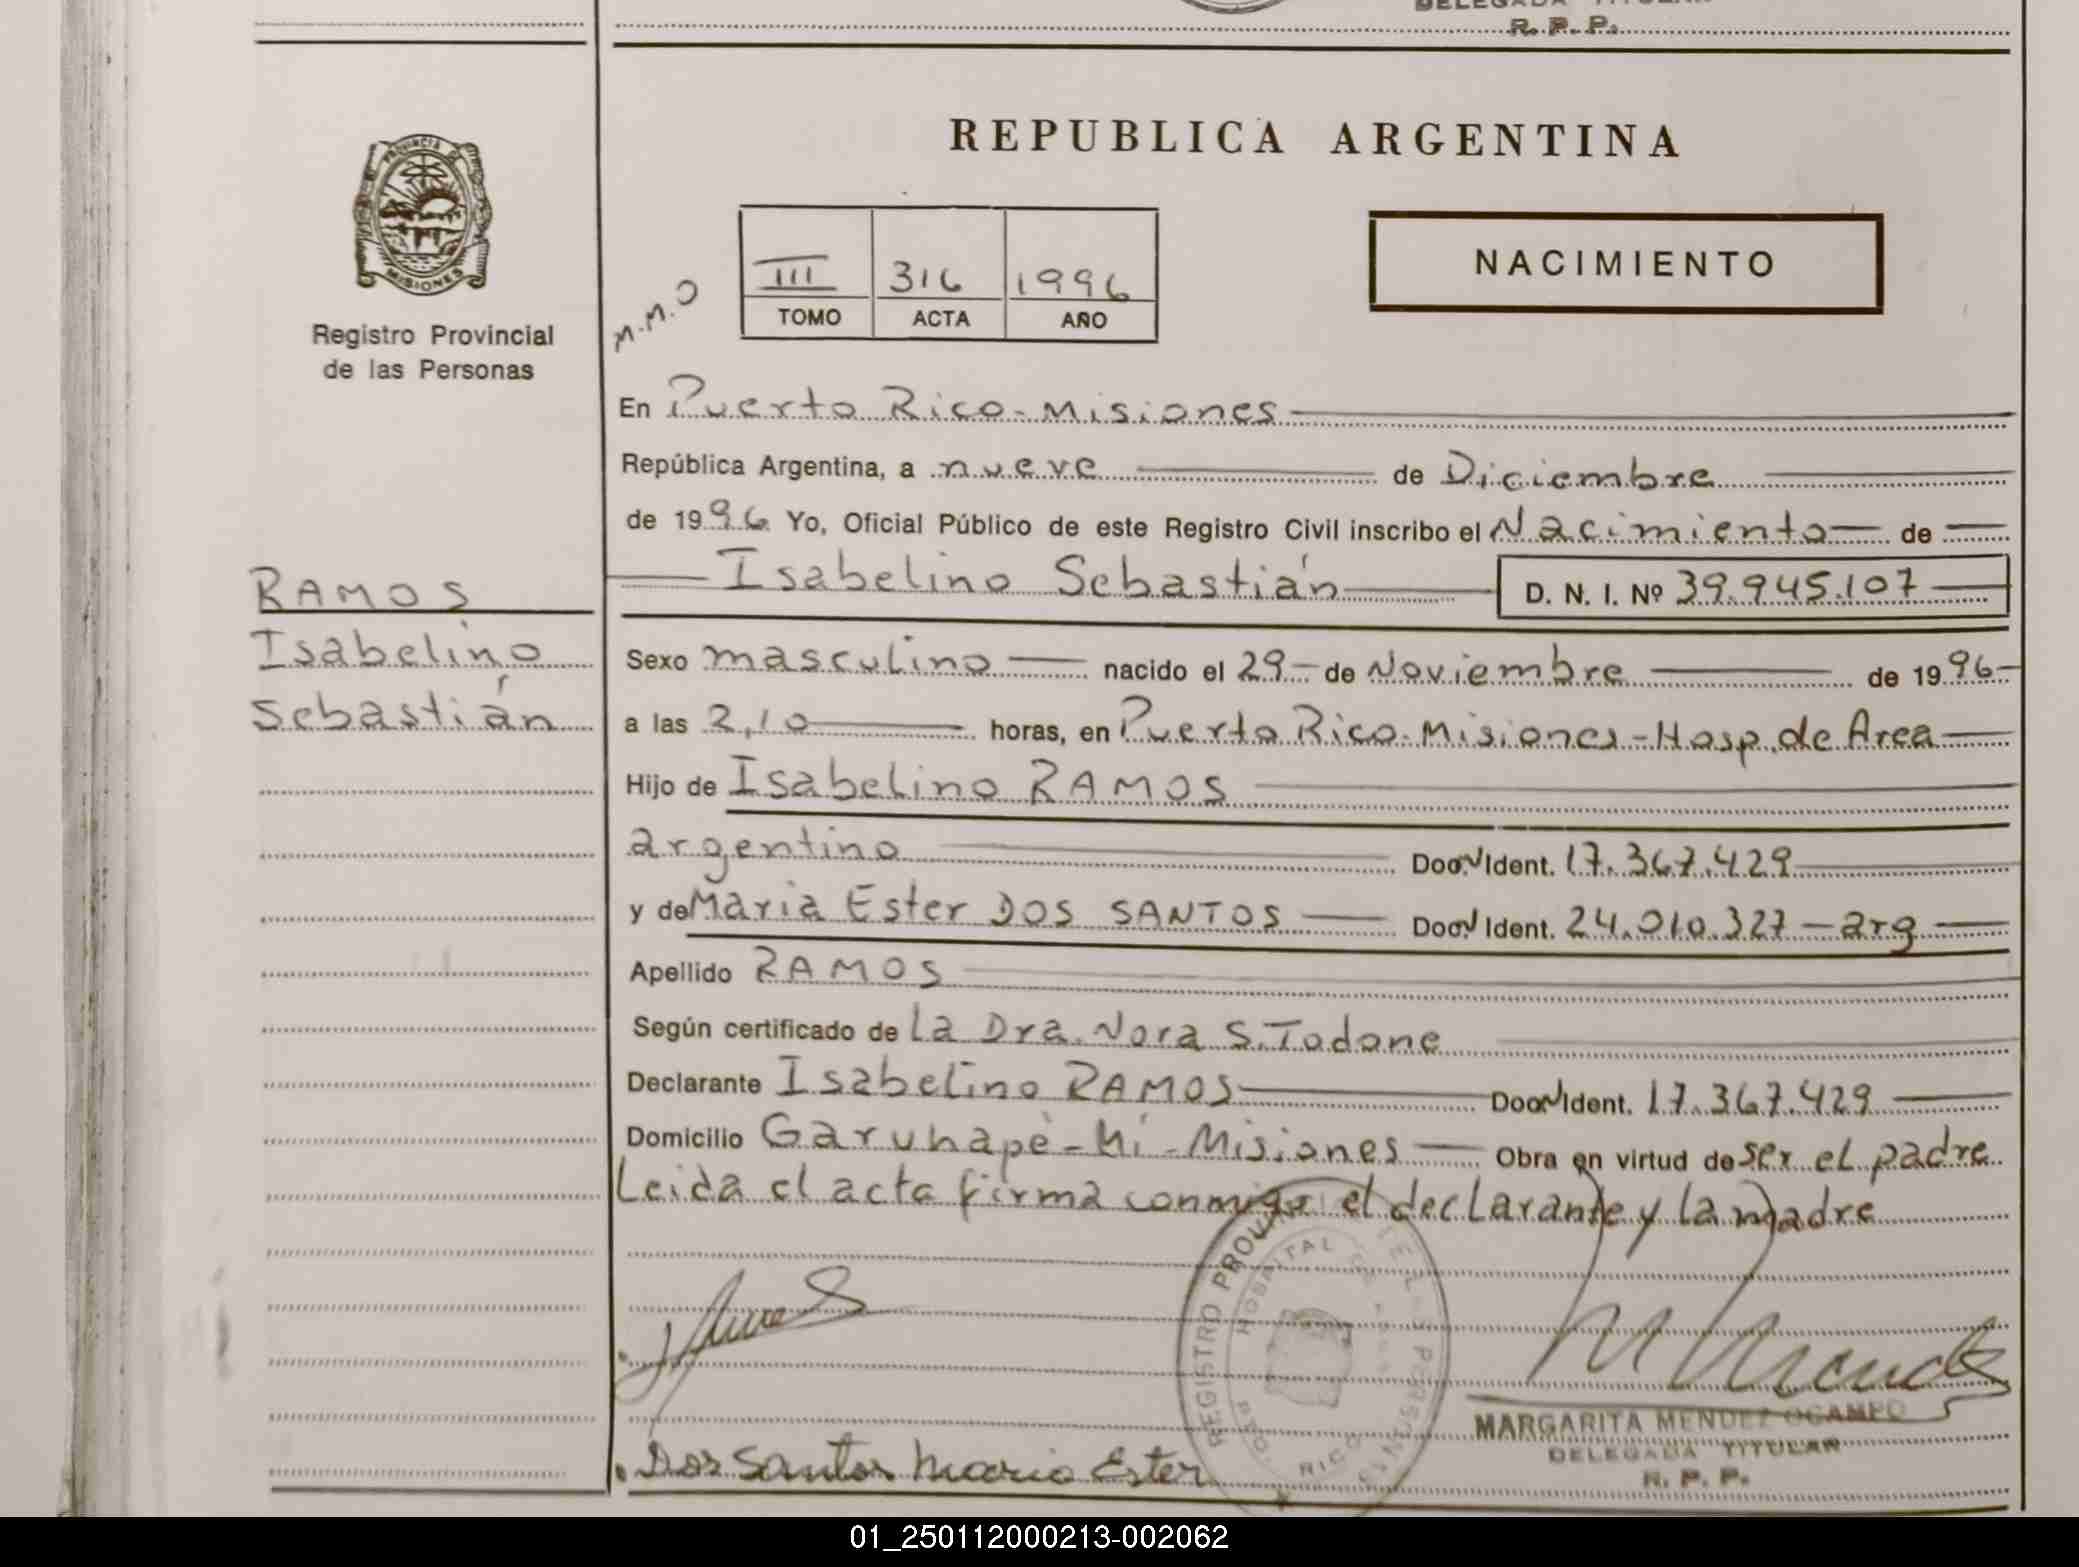 DELEGADA TITULAR
R. P. P.
PROVINCIA DE
MISIONES
Registro Provincial
de las Personas
RAMOS
Isabelino
Sebastián
REPUBLICA ARGENTINA
M.M.O
III 316 1996
TOMO ACTA AÑO
NACIMIENTO
En Puerto Rico - Misiones
República Argentina, a nueve de Diciembre
de 1996 Yo, Oficial Público de este Registro Civil inscribo el Nacimiento de
Isabelino Sebastián D. N. I. Nº 39.945.107
Sexo masculino nacido el 29 de Noviembre de 1996
a las 2,10 horas, en Puerto Rico - Misiones - Hosp. de Area
Hijo de Isabelino RAMOS
argentino Doc. Ident. 17.367.429
y de Maria Ester DOS SANTOS Doc. Ident. 24.010.327 - arg
Apellido RAMOS
Según certificado de La Dra. Nora S. Todone
Declarante Isabelino RAMOS Doc. Ident. 17.367.429
Domicilio Garuhapé - Mí - Misiones Obra en virtud de ser el padre
Leida el acta firma conmigo el declarante y la madre
REGISTRO PROVINCIAL DE LAS PERSONAS
HOSPITAL DE AREA
PTO. RICO
MARGARITA MENDEZ OCAMPO
DELEGADA TITULAR
R. P. P.
Dos Santos Maria Ester
01_250112000213-002062